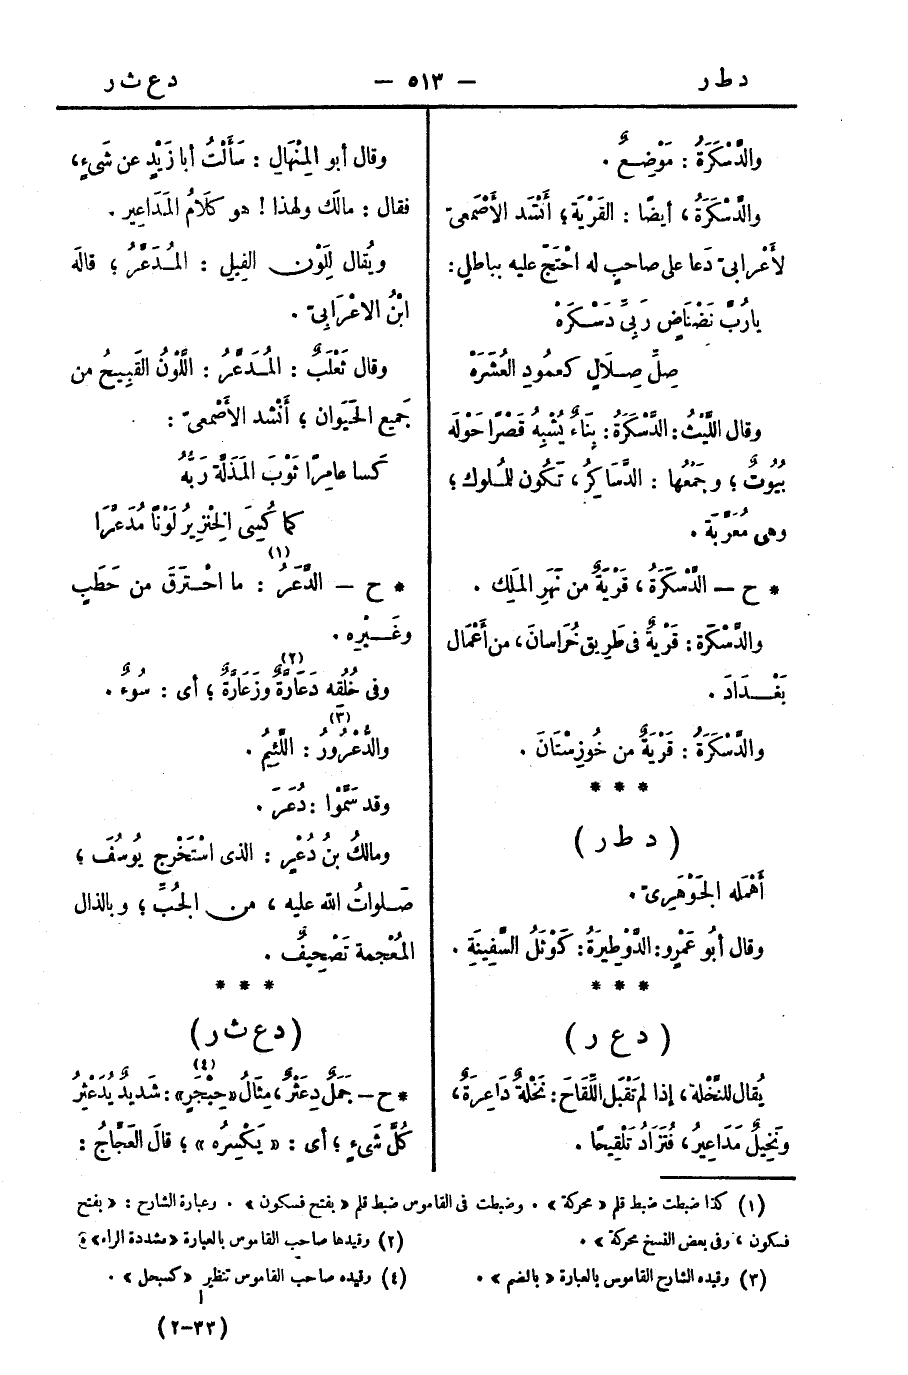 دطر — ٥١٣ — دعثر
والدَّسْكَرَةُ : مَوْضِعٌ .
والدَّسْكَرَةُ ، أيضًا : القَرْيَة ؛ أَنْشَد الأَصْمَعىّ
لأَعْرابىّ دَعا على صاحبٍ له احْتَجّ عليه بباطلٍ :
يارُبَّ نَضْنَاضٍ رَبِىِّ دَسْكَرَهْ
صِلِّ صِلَالٍ كعمُودِ العُشَرَهْ
وقال اللَّيْثُ : الدَّسْكَرَةُ : بِنَاءٌ يُشْبِهُ قَصْرًا حَوْلَه
بيُوتٌ ؛ وجَمْعُها : الدَّساكِرُ ، تَكُون للمُلوك ؛
وهى مُعَرَّبَة .
* ح — الدَّسْكَرَةُ ، قَرْيَةٌ من نَهَرِ المَلِك .
والدَّسْكَرَة : قَرْيَةٌ فى طَرِيق خُرَاسانَ ، من أَعْمَال
بَغْدَادَ .
والدَّسْكَرَةُ : قَرْيَةٌ من خُوزِسْتَانَ .
* * *
( دطر )
أَهْمَله الجَوْهَرِىّ .
وقال أبُو عَمْرٍو : الدَّوْطِيرَةُ : كَوْثَلُ السَّفِينَةِ .
* * *
( دعر )
يُقال للنَّخْلة ، إذا لم تَقْبَل اللِّقَاحَ : نَخْلَةٌ دَاعِرَةٌ ،
ونَخِيلٌ مَدَاعِيرُ ، فُتَزَادُ تَلْقِيحًا .
وقال أبو المِنْهالِ : سَأَلْتُ أبا زَيْدٍ عن شَىءٍ ،
فقال : مالَك ولهذا ! هو كَلَامُ المَدَاعِير .
ويُقال لِلَوْن الفِيلِ : المُدَعَّرُ ؛ قالَه
ابْنُ الاعْرَابِىّ .
وقال ثَعْلَبٌ : المُدَعَّرُ : اللَّوْنُ القَبِيحُ من
جَميع الحَيَوان ؛ أَنْشد الأَصْمعىّ :
كَسا عامِرًا ثَوْبَ المَذَلَّة رَبُّهُ
كما كُسِىَ الخِنْزِيرُ لَوْنًا مُدَعَّرَا
* ح — الدَّعَرُ (١) : ما احْتَرَقَ من حَطَبٍ
وغَيْرِه .
وفى خُلُقه دَعَارَّةٌ (٢) وزَعَارَّةٌ ؛ أى : سُوءٌ .
والدُّعْرُورُ (٣) : اللَّئِيمُ .
وقد سَمَّوْا : دُعَرَ .
ومالكُ بنُ دُعْرٍ : الذى اسْتَخْرج يوُسُفَ ،
صَلواتُ الله عليه ، من الجُبِّ ؛ وبالذال
المُعْجمة تَصْحِيفٌ .
* * *
( دعثر )
* ح — جَمَلٌ دِعَثْرٌ ، مِثَالُ «حِبَجْرٍ (٤)» : شَديدٌ يُدَعْثِرُ
كُلَّ شَىءٍ ؛ أى : « يَكْسِرُه » ؛ قالَ العَجَّاجُ :
(١) كذا ضبطت ضبط قلم « محركة » . وضبطت فى القاموس ضبط قلم « بفتح فسكون » . وعبارة الشارح : « بفتح
فسكون ، وفى بعض النسخ محركة » .
(٢) وقيدها صاحب القاموس بالعبارة «مشددة الراء»
(٣) وقيده الشارح القاموس بالعبارة « بالضم » .
(٤) وقيده صاحب القاموس تنظير « كسبحل » .
(٣٣-٢)